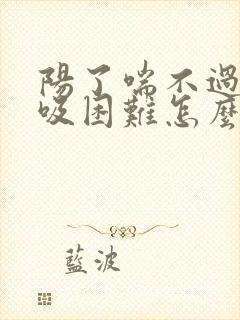 陽了喘不過
吸困難怎麼
藍波